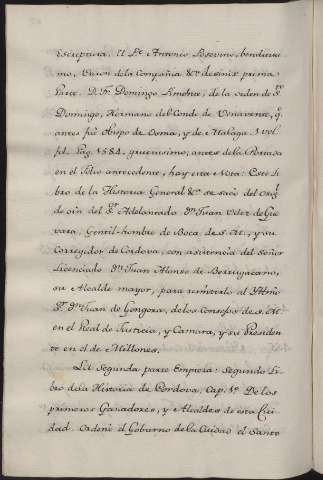 Escriptura. El Pe. Antonio Posevino, benditissi
mo, Varon de la Compañia &c. de sinix prima
Parte. D. Fr. Domingo Pimentel, de la orden de Sto.
Domingo, Hermano del Conde de Venavente, q.
antes fue Obispo de Osma, y de Malaga. 1 vol.
fol. Pag. 1584. gruesissimo, antes de la Portada
en el folio antecedente, hay esta Nota: Este Li
bro de la Historia General &c. se sacó del orig.l
de oin del Sr. Adelantado Dn. Juan Velez de Gue
vara, Gentil-hombre de Boca de S. M., y su
Corregidor de Cordova, con asistencia del Señor
Licenciado Dn. Juan Alonso de Berrugacano,
su Alcalde mayor, para remitirlo al Ilmo.
Sr. Dn. Juan de Gongora, de los Consejos de S. M.
en el Real de Justicia, y Camara, y su Presiden
te en el de Millones.
La Segunda parte Empieza: Segundo Li
bro de la Historia de Cordova. Cap. 1o. De los
primeros Ganadores, y Alcaldes de esta Ciu
dad. Ordenó el Gobierno de la Ciudad el Santo